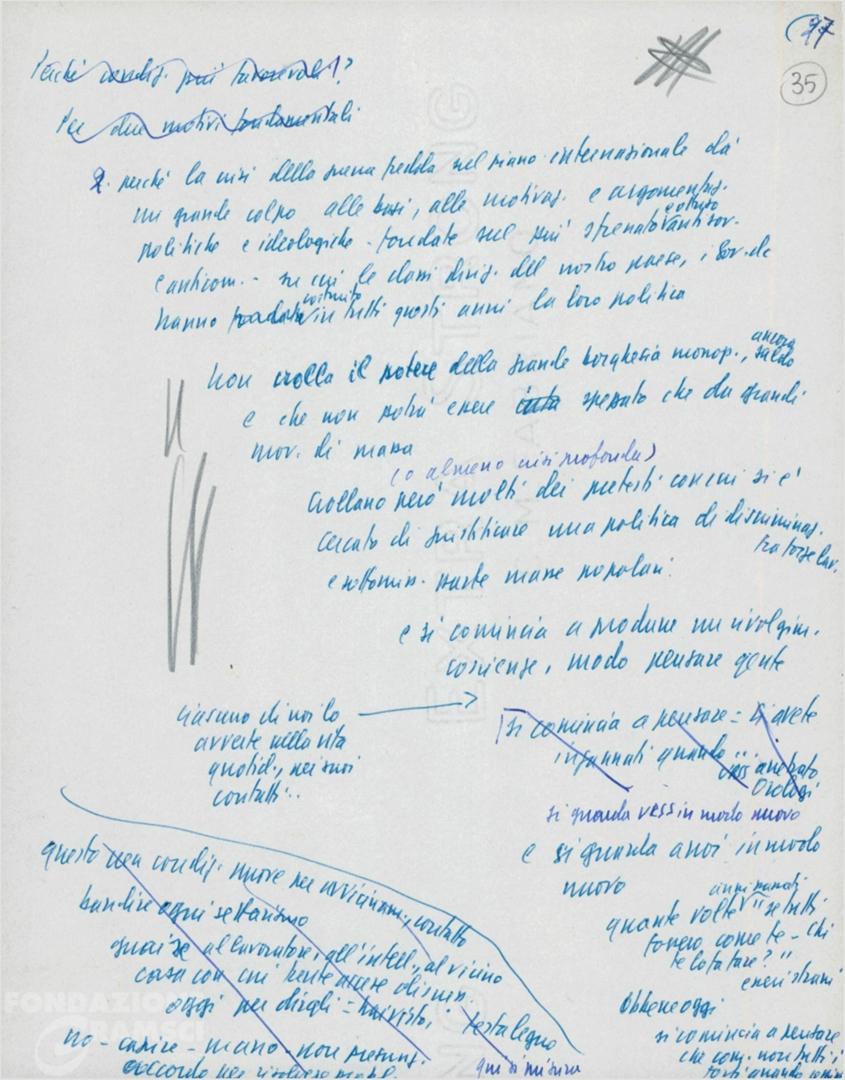 27
35
Perché condiz. più favorevoli?
Per due motivi fondamentali
2. perché la crisi della guerra fredda sul piano internazionale dà
un grande colpo alle basi, alle motivaz. e argomentaz.
politiche e ideologiche - fondate sul più sfrenato e ottuso antisov.
e anticom. - su cui le classi dirig. del nostro paese, i Gov. dc
hanno fondato costruito in tutti questi anni la loro politica
Non crolla il potere della grande borghesia monop., ancora saldo
e che non potrà essere spezzato che da grandi
mov. di massa
(o almeno crisi profonda)
Crollano però molti dei pretesti con cui si è
cercato di giustificare una politica di discriminaz.
fra forze lav.
e sottomiss. parte masse popolari.
e si comincia a produrre un rivolgim.
coscienze, modo pensare gente
Ciascuno di noi lo
avverte nella vita
quotid., nei suoi
contatti..
si comincia a pensare = ci avete
ingannati quando
si guarda URSS in modo nuovo
e si guarda a noi in modo
nuovo
quante volte anni passati "se tutti
fossero come te - chi
te lo fa fare?"
Ebbene oggi
si comincia a pensare
che com. non tutti i
questo crea condiz. nuove per avvicinam., contatto
bandire ogni settarismo
guai se al lavoratore, all'intell., al vicino
casa con cui avesse discuss.
oggi per dirgli = hai visto,
testa legno
no - capire - mano - non
accordo per risolvere probl.
qui si misura
FONDAZIONE
GRAMSCI
EXTRA STRONG